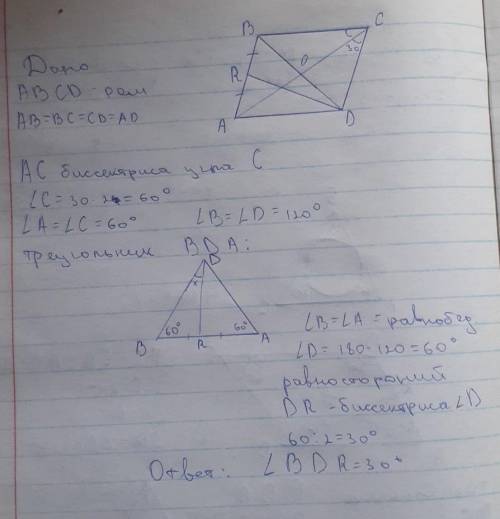 B
C
C
30
O
R
A
D
Дано
ABCD - ром
AB=BC=CD=AD
AC биссектриса угла C
∠C = 30·2 = 60°
∠A = ∠C = 60° ∠B = ∠D = 120°
треугольник BDA:
D
x
60°
60°
B
R
A
∠B = ∠A = равнобед
∠D = 180-120 = 60°
равносторонний
DR - биссектриса ∠D
60:2=30°
Ответ: ∠BDR=30°